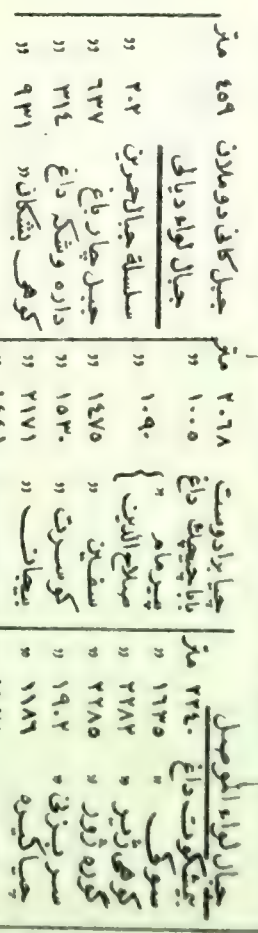 جبال لواء الموصل
بيشكوت داغ ٢٢٤٠ متر
سوگ " ١٦٣٥ "
كوهى زير " ٢٢٨٢ "
كوره ژور " ٢٢٨٥ "
سر بزني " ١٩٠٢ "
چيا گيره ١١٨٦ "
چيا برادوست ٢٠٦٨ متر
بابا چيچك داغ ١٠٠٥ "
پيرمام "
صلاح الدين } ١٠٩٠ "
سفين " ١٤٧٥ "
كوسرت " ١٥٣٠ "
بيجان " ٢١٧١ "
جبل كاني دوملان ٤٥٩ متر
جبال لواء ديالى
سلسلة جبال حمرين ٣٠٢ "
جبل چارباغ ٦٣٧ "
داره وشكه داغ ٣١٤ "
كوهى بشكان " ٩٣١ "